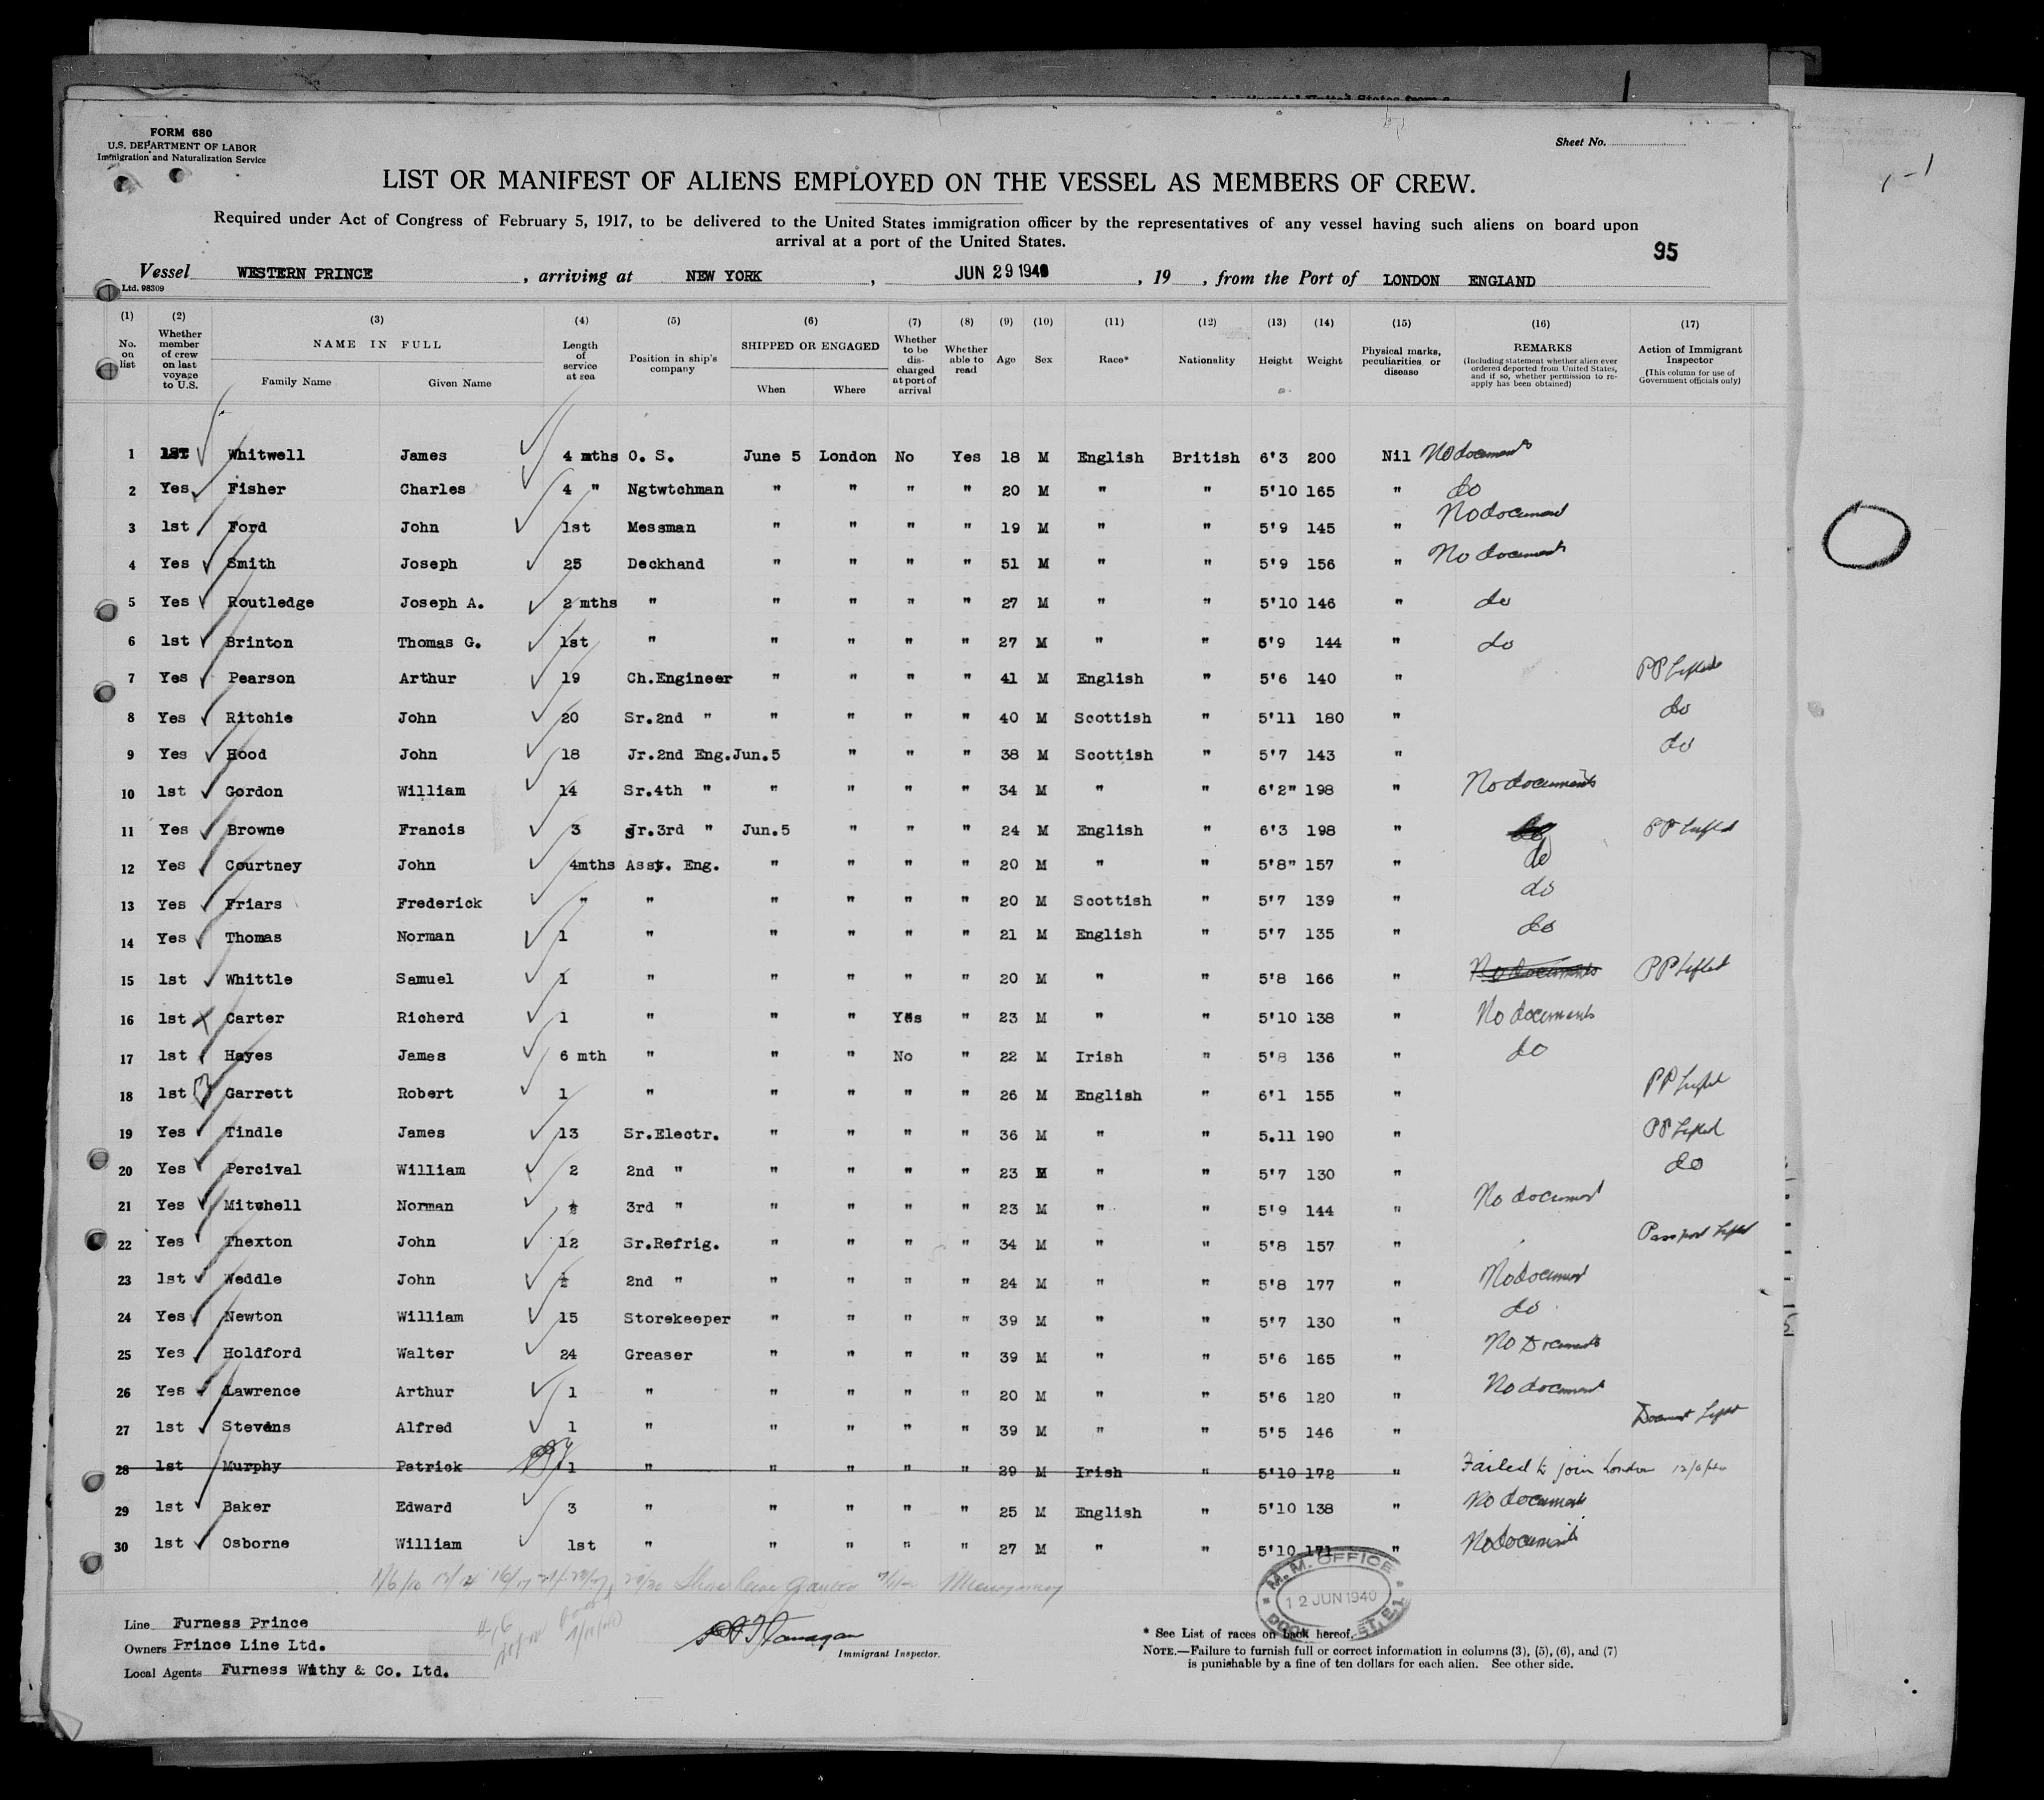 FORM 680
U.S. DEPARTMENT OF LABOR
Immigration and Naturalization Service
Sheet No.
LIST OR MANIFEST OF ALIENS EMPLOYED ON THE VESSEL AS MEMBERS OF CREW.
Required under Act of Congress of February 5, 1917, to be delivered to the United States immigration officer by the representatives of any vessel having such aliens on board upon
arrival at a port of the United States.
95
Vessel WESTERN PRINCE, arriving at NEW YORK, JUN 29 1940, 19 , from the Port of LONDON ENGLAND
Ltd. 98309
(1) No. on list
(2) Whether member of crew on last voyage to U.S.
(3) NAME IN FULL Family Name Given Name
(4) Length of service at sea
(5) Position in ship's company
(6) SHIPPED OR ENGAGED When Where
(7) Whether to be discharged at port of arrival
(8) Whether able to read
(9) Age
(10) Sex
(11) Race*
(12) Nationality
(13) Height
(14) Weight
(15) Physical marks, peculiarities or disease
(16) REMARKS (Including statement whether alien ever ordered deported from United States, and if so, whether permission to re-apply has been obtained)
(17) Action of Immigrant Inspector (This column for use of Government officials only)
1 1ST Whitwell James 4 mths O. S. June 5 London No Yes 18 M English British 6'3 200 Nil No documents
2 Yes Fisher Charles 4 " Ngtwtchman " " " " 20 M " " 5'10 165 " do
3 1st Ford John 1st Messman " " " " 19 M " " 5'9 145 " No document
4 Yes Smith Joseph 25 Deckhand " " " " 51 M " " 5'9 156 " No documents
5 Yes Routledge Joseph A. 2 mths " " " " " 27 M " " 5'10 146 " do
6 1st Brinton Thomas G. 1st " " " " " 27 M " " 5'9 144 " do
7 Yes Pearson Arthur 19 Ch.Engineer " " " " 41 M English " 5'6 140 " PP Lifted
8 Yes Ritchie John 20 Sr.2nd " " " " " 40 M Scottish " 5'11 180 " do
9 Yes Hood John 18 Jr.2nd Eng. Jun.5 " " " 38 M Scottish " 5'7 143 " do
10 1st Gordon William 14 Sr.4th " " " " " 34 M " " 6'2" 198 " No documents
11 Yes Browne Francis 3 Jr.3rd " Jun.5 " " " 24 M English " 6'3 198 " do PP Lifted
12 Yes Courtney John 4mths Asst. Eng. " " " " 20 M " " 5'8" 157 " do
13 Yes Friars Frederick " " " " " " 20 M Scottish " 5'7 139 " do
14 Yes Thomas Norman 1 " " " " " 21 M English " 5'7 135 " do
15 1st Whittle Samuel 1 " " " " " 20 M " " 5'8 166 " No documents PP Lifted
16 1st Carter Richerd 1 " " " Yes " 23 M " " 5'10 138 " No documents
17 1st Hayes James 6 mth " " " No " 22 M Irish " 5'8 136 " do
18 1st Garrett Robert 1 " " " " " 26 M English " 6'1 155 " PP Lifted
19 Yes Tindle James 13 Sr.Electr. " " " " 36 M " " 5.11 190 " PP Lifted
20 Yes Percival William 2 2nd " " " " " 23 M " " 5'7 130 " do
21 Yes Mitchell Norman ½ 3rd " " " " " 23 M " " 5'9 144 " No document
22 Yes Thexton John 12 Sr.Refrig. " " " " 34 M " " 5'8 157 " Passport Lifted
23 1st Weddle John ½ 2nd " " " " " 24 M " " 5'8 177 " No document
24 Yes Newton William 15 Storekeeper " " " " 39 M " " 5'7 130 " do
25 Yes Holdford Walter 24 Greaser " " " " 39 M " " 5'6 165 " No Documents
26 Yes Lawrence Arthur 1 " " " " " 20 M " " 5'6 120 " No document
27 1st Stevens Alfred 1 " " " " " 39 M " " 5'5 146 " Document Lifted
28 1st Murphy Patrick 1 " " " " " 29 M Irish " 5'10 172 " Failed to join London
29 1st Baker Edward 3 " " " " " 25 M English " 5'10 138 " No documents
30 1st Osborne William 1st " " " " " 27 M " " 5'10 171 " No documents
M. M. OFFICE
12 JUN 1940
Line Furness Prince
Owners Prince Line Ltd.
Local Agents Furness Withy & Co. Ltd.
Immigrant Inspector.
* See List of races on back hereof.
NOTE.—Failure to furnish full or correct information in columns (3), (5), (6), and (7)
is punishable by a fine of ten dollars for each alien. See other side.